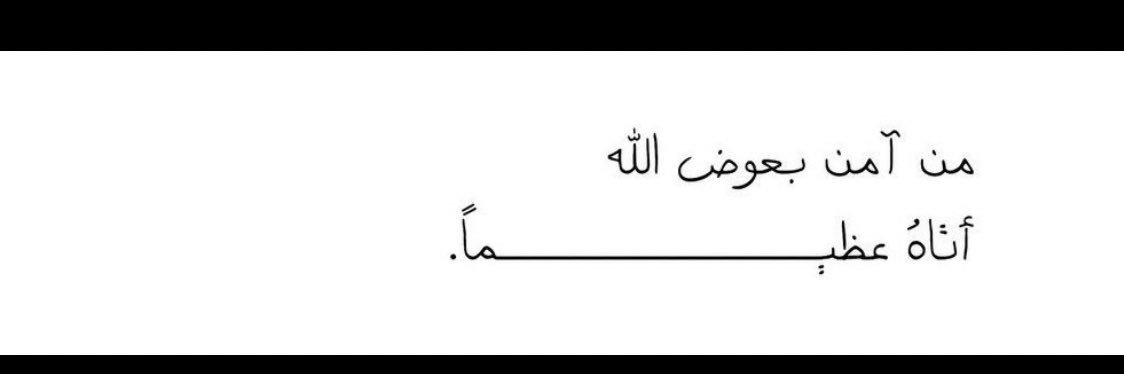 من آمن بعوض الله
أتاهُ عظيـــــــــــــــــماً.